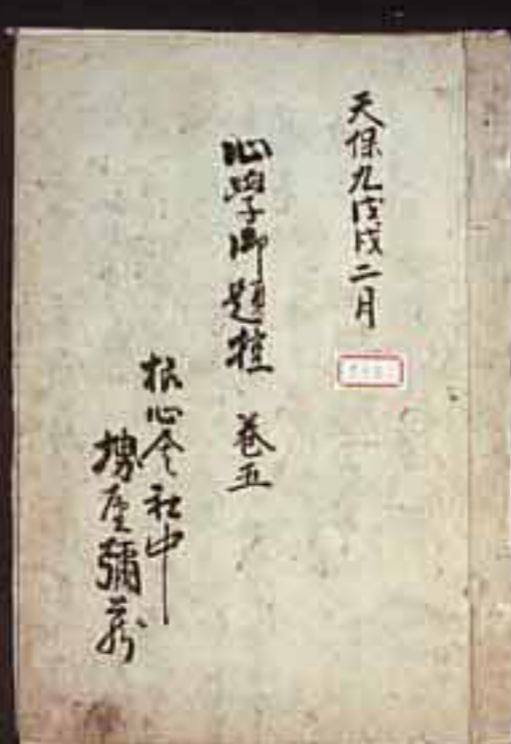 天保九戊戌二月
心學御題控 巻五
根心舎社中
屋彌蔵